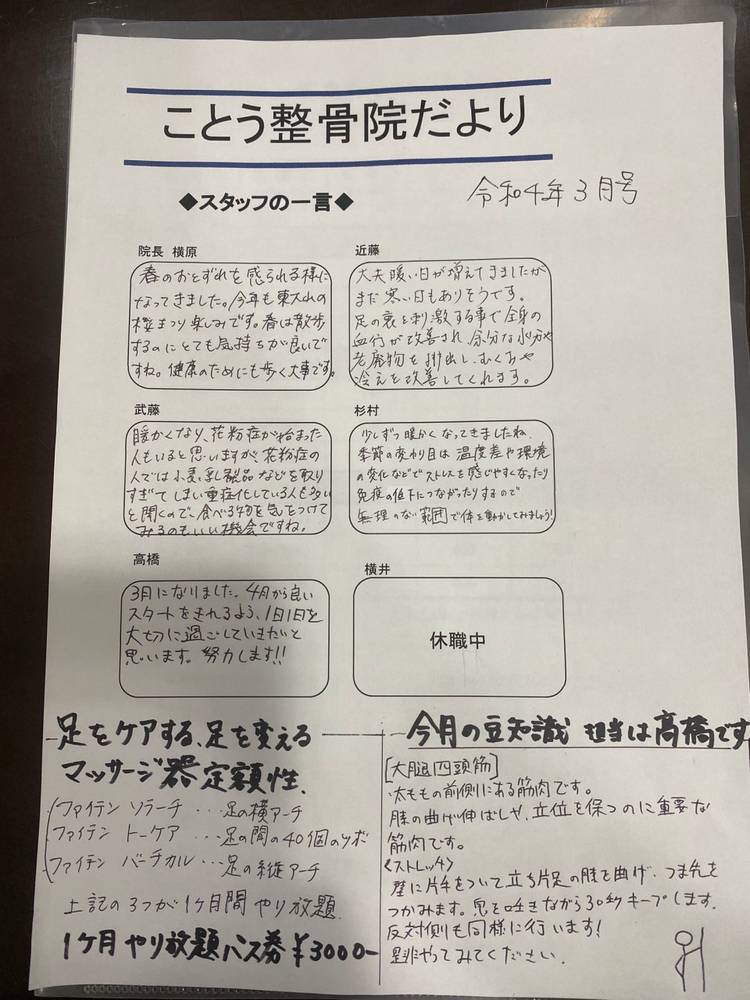 ことう整骨院だより
令和4年3月号
◆スタッフの一言◆
院長 横原
春のおとずれを感られる様に
なってきました。今年も東大山の
桜まつり楽しみです。春は散歩
するのにとても気持ちが良いで
すね。健康のためにも歩く大事です。
近藤
大夫暖い日が増えてきましたが
まだ寒い日もありそうです。
足の裏を刺激する事で全身の
血行が改善され、余分な水分や
老廃物を排出し、むくみや
冷えを改善してくれます。
武藤
暖かくなり、花粉症が始まった
人もいると思いますが、花粉症の
人では小麦、乳製品などを取り
すぎてしまい重症化している人も多い
と聞くので、食べる物を気をつけて
みるのもいい機会ですね。
杉村
少しずつ暖かくなってきましたね。
季節の変わり目は温度差や環境
の変化などでストレスを感じやすくなったり
免疫の低下につながったりするので
無理のない範囲で体を動かしてみましょう!
高橋
3月になりました。4月から良い
スタートをきれるよう、1日1日を
大切に過ごしていきたいと
思います。努力します!!
横井
休職中
足をケアする、足を変える
マッサージ器定額性.
ファイテン ソラーチ・・・足の横アーチ
ファイテン トーケア・・・足の間の40個のツボ
ファイテン バーチカル・・・足の縦アーチ
上記の3つが1ヶ月間やり放題.
1ヶ月やり放題パス券¥3000-
今月の豆知識 担当は高橋です
[大腿四頭筋]
太ももの前側にある筋肉です。
膝の曲げ伸ばしや、立位を保つのに重要な
筋肉です。
〈ストレッチ〉
壁に片手をついて立ち片足の膝を曲げ、つま先を
つかみます。息を吐きながら30秒キープします.
反対側も同様に行います!
是非やってみてください.